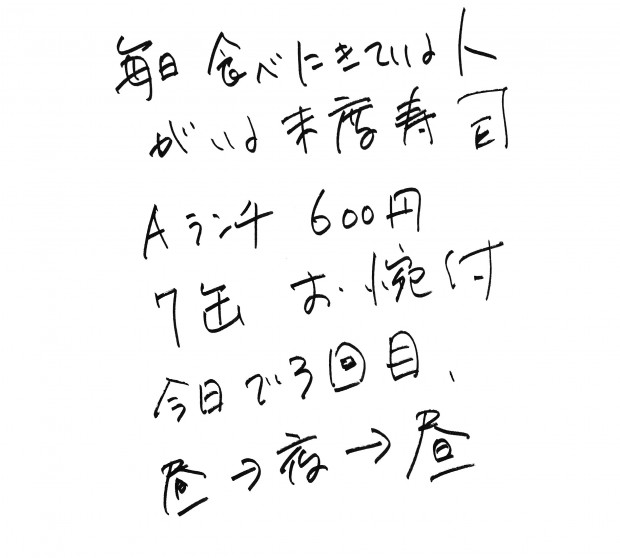 毎日食べにきている人
がいる 末廣寿司
Aランチ 600円
7缶 お椀付
今日で3回目、
昼→夜→昼